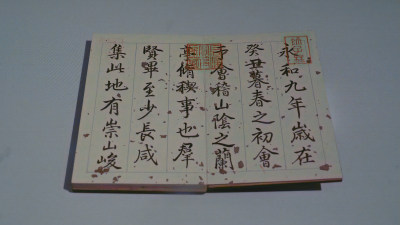 永和九年歲在
癸丑暮春之初會
于會稽山陰之蘭
亭脩稧事也羣
賢畢至少長咸
集此地有崇山峻